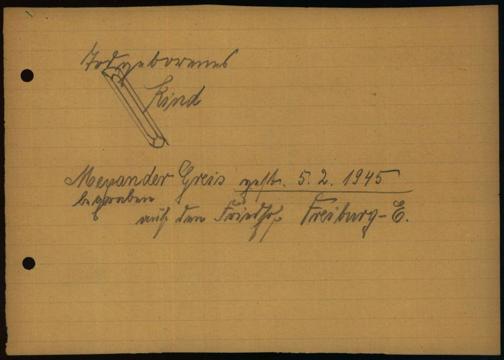 Todgeborenes
Kind
Mexander Greis gestr. 5.2.1945
begraben
auf den Friedhof Freiburg-E.